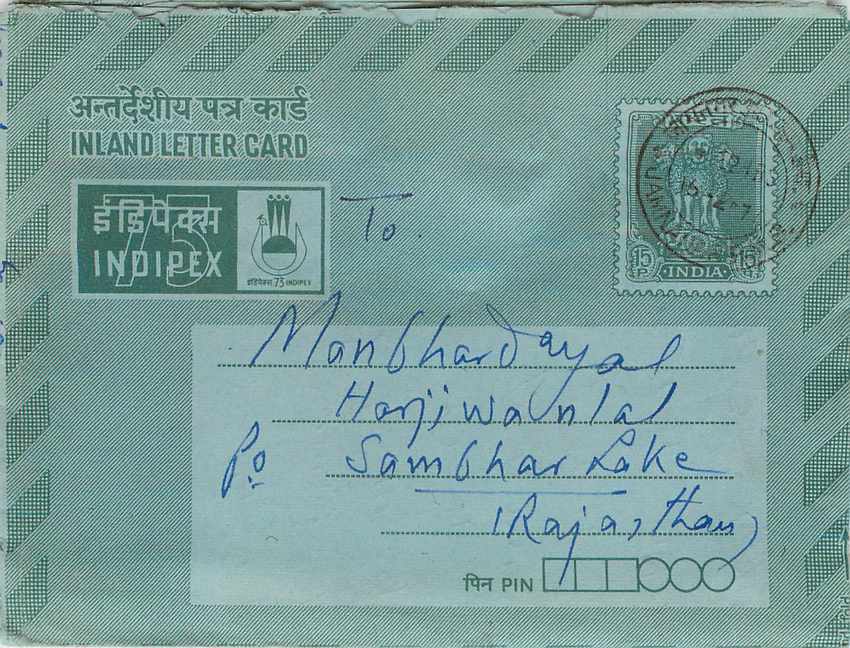 अन्तर्देशीय पत्र कार्ड
INLAND LETTER CARD
75
इंडिपेक्स
INDIPEX
इंडिपेक्स 73 INDIPEX
15 P. INDIA 15
To
Manbhardayal
Harjiwanlal
Po Sambhar Lake
(Rajasthan)
पिन PIN